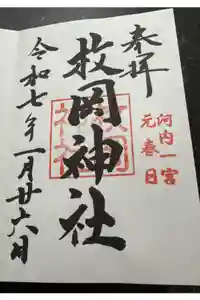 奉拝
河内一宮
元春日
枚岡神社
令和七年一月廿六日